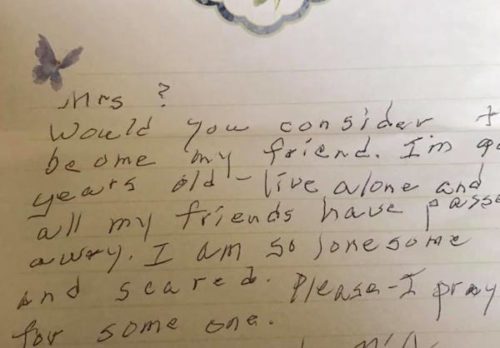 Mrs ?
Would you consider
beome my friend. I'm
years old - live alone and
all my friends have passe
away. I am so lonesome
and scared. Please - I pray
for some one.